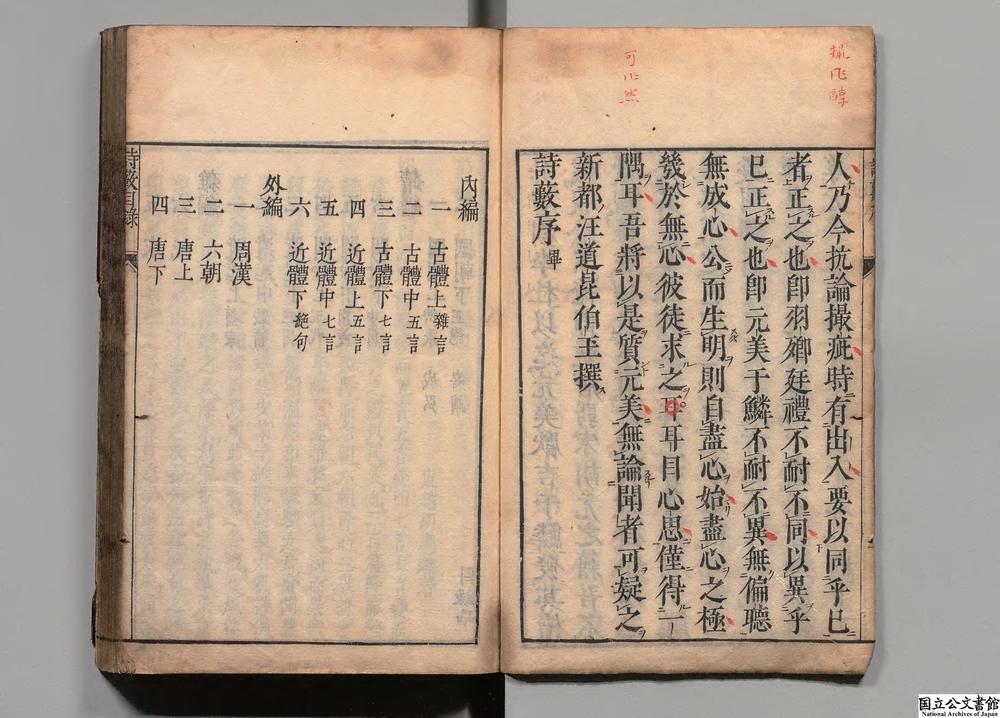 撮作醇
可作然
人乃今抗論撮疵時有出入要以同乎已
者正之也卽羽翼廷禮不耐不同以異乎
巳正之也卽元美于鱗不耐不異無偏聽
無成心公而生明則自盡心始盡心之極
幾於無心彼徒求之耳耳目心思僅得一
隅耳吾將以是質元美無論聞者可疑之
新都汪道昆伯玉撰
詩藪序畢
詩藪目錄
內編
一 古體上雜言
二 古體中五言
三 古體下七言
四 近體上五言
五 近體中七言
六 近體下絕句
外編
一 周漢
二 六朝
三 唐上
四 唐下
国立公文書館
National Archives of Japan